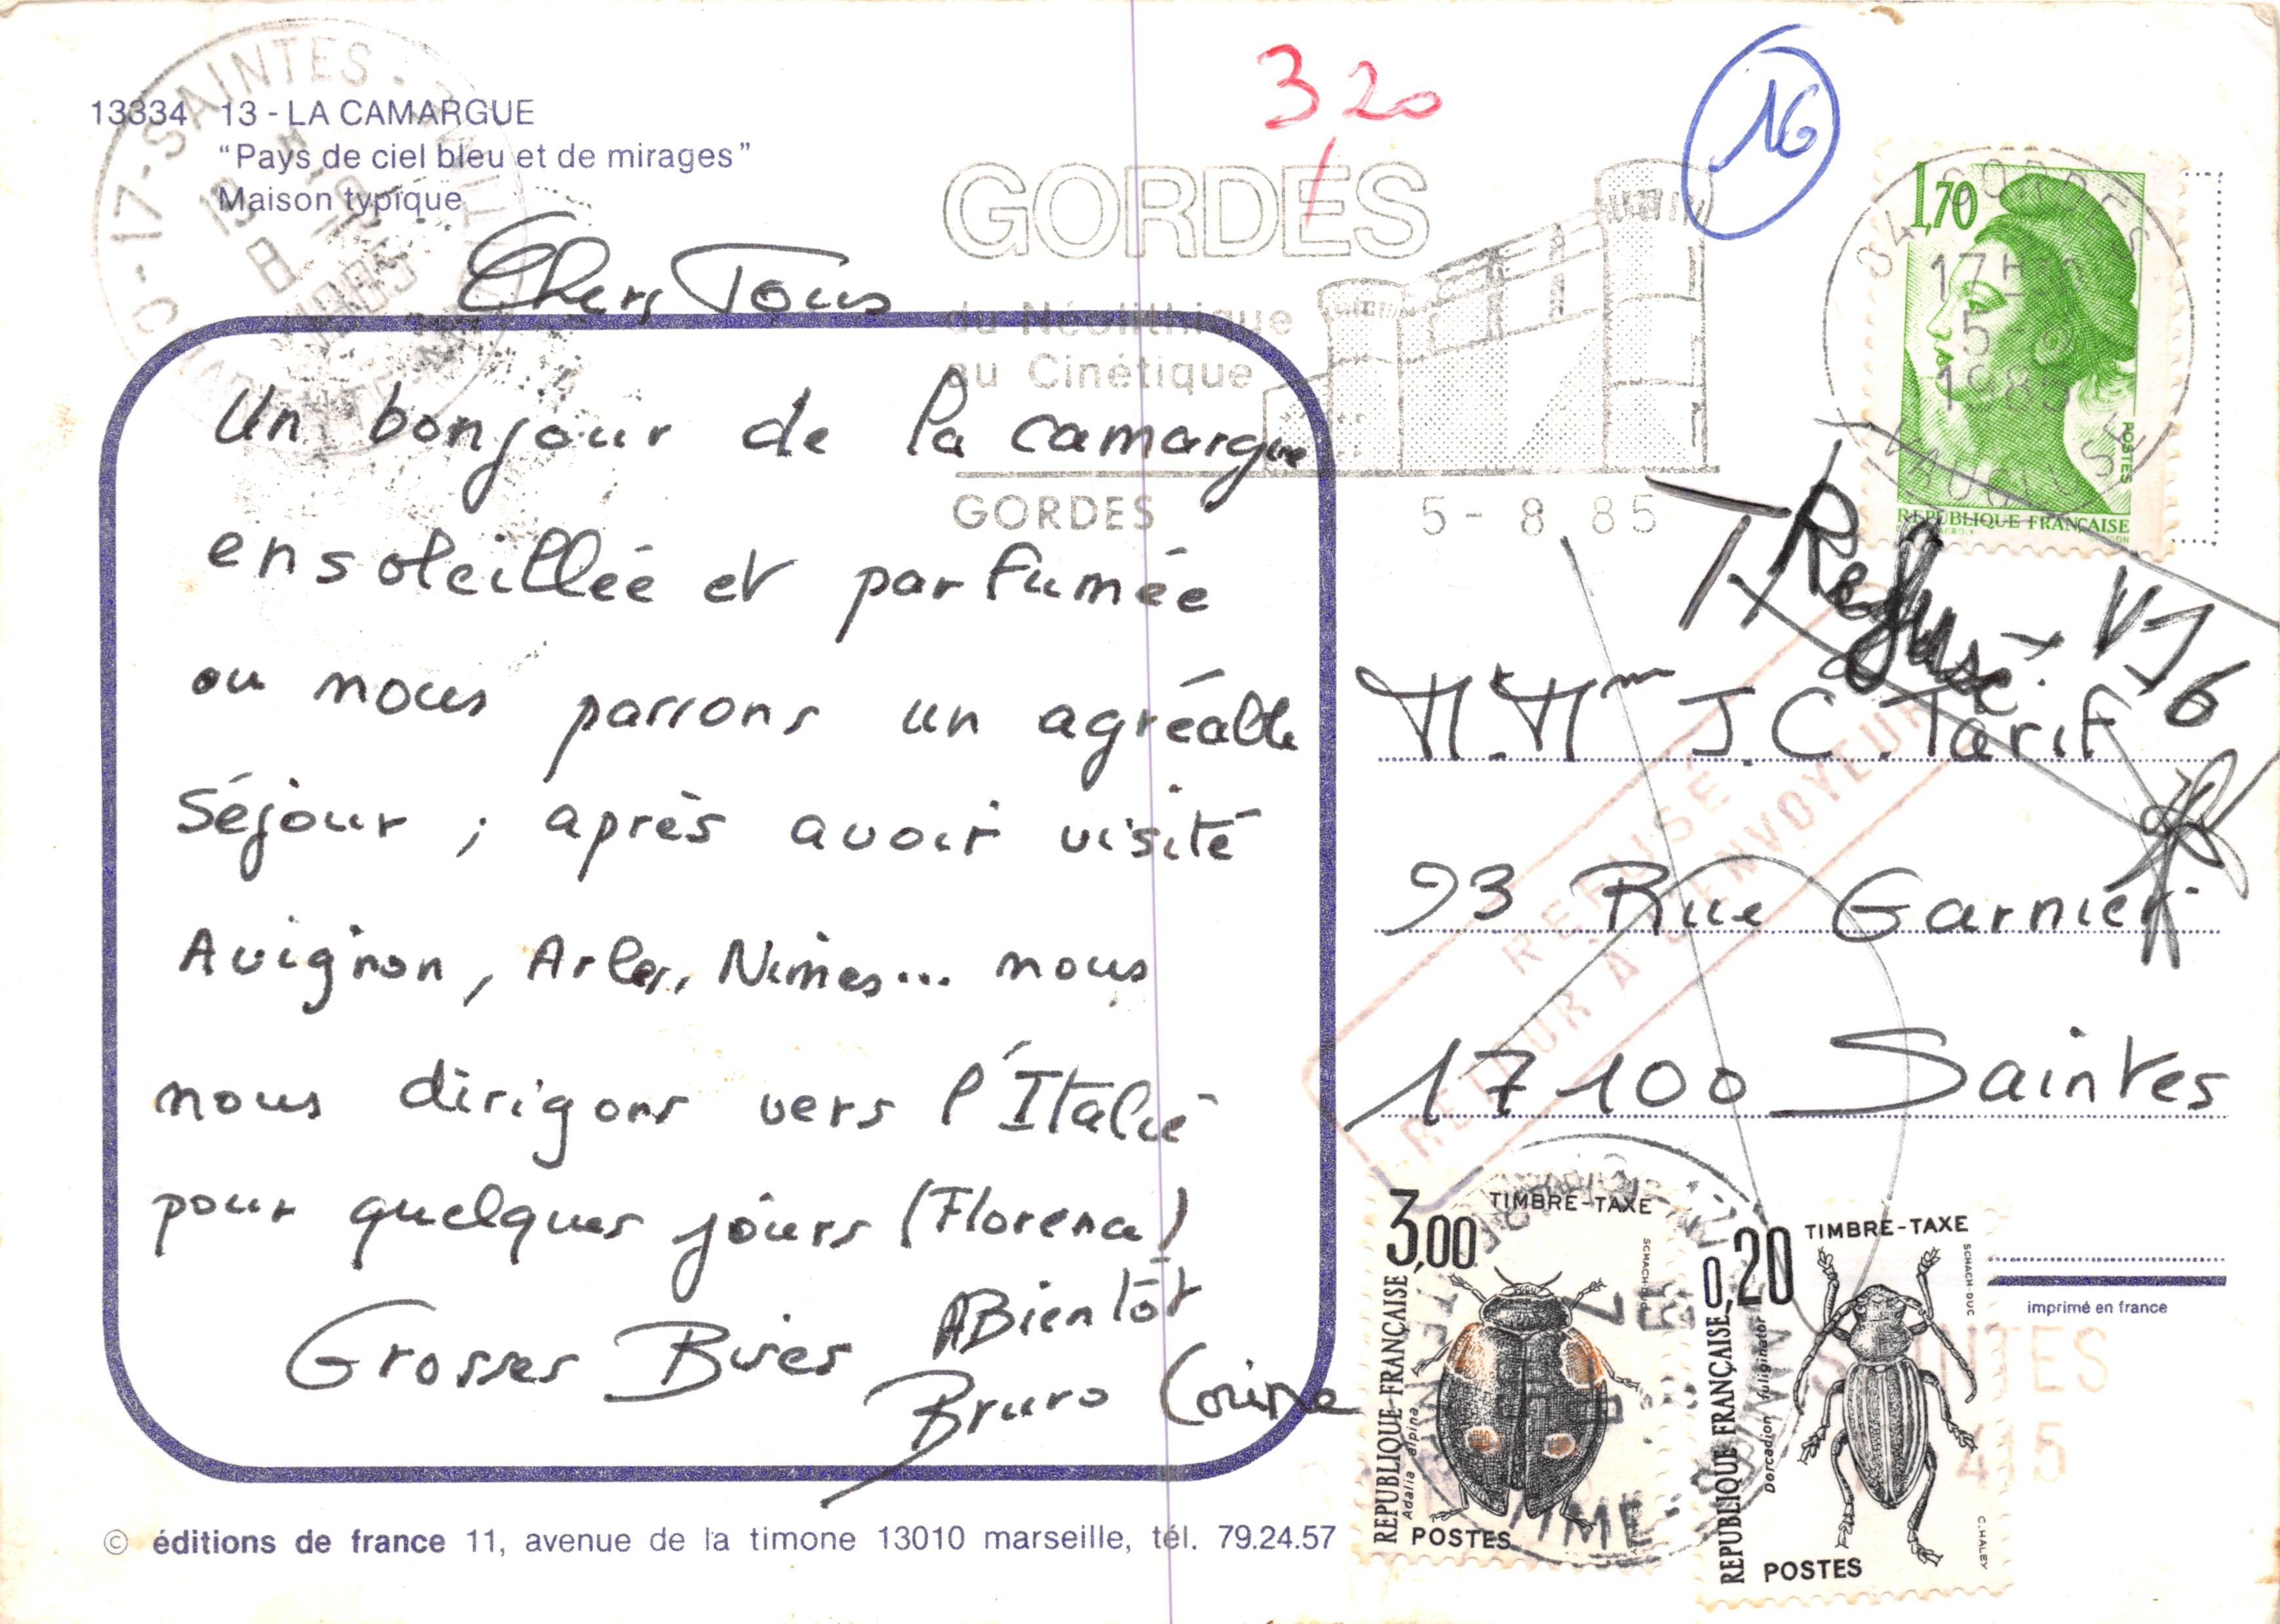 13334 13 - LA CAMARGUE
“Pays de ciel bleu et de mirages”
Maison typique
Chers Tous
Un bonjour de la camargue
ensoleillée et parfumée
ou nous passons un agréable
Séjour ; après avoir visité
Avignon, Arles, Nimes... nous
nous dirigons vers l'Italie
pour quelques jours (Florence)
Grosses Bises A Bientôt
Bruno Corine
© éditions de france 11, avenue de la timone 13010 marseille, tél. 79.24.57
3,20
16
GORDES
du Néolithique
au Cinétique
GORDES 5 - 8 85
84 GORDES
17H
5-8
1985
VAUCLUSE
1,70
POSTES
REPUBLIQUE FRANÇAISE
17-SAINTES
8
1985
T Refusé
REFUSÉ
RETOUR À L'ENVOYEUR
M. Mme J.C. Tarif
93 Rue Garnier
17100 Saintes
3,00 TIMBRE-TAXE
REPUBLIQUE FRANÇAISE
Adalia alpina
POSTES
0,20 TIMBRE-TAXE
SCHACH-DUC
REPUBLIQUE FRANÇAISE
Dorcadion fuliginator
C. HALEY
POSTES
imprimé en france
SAINTES